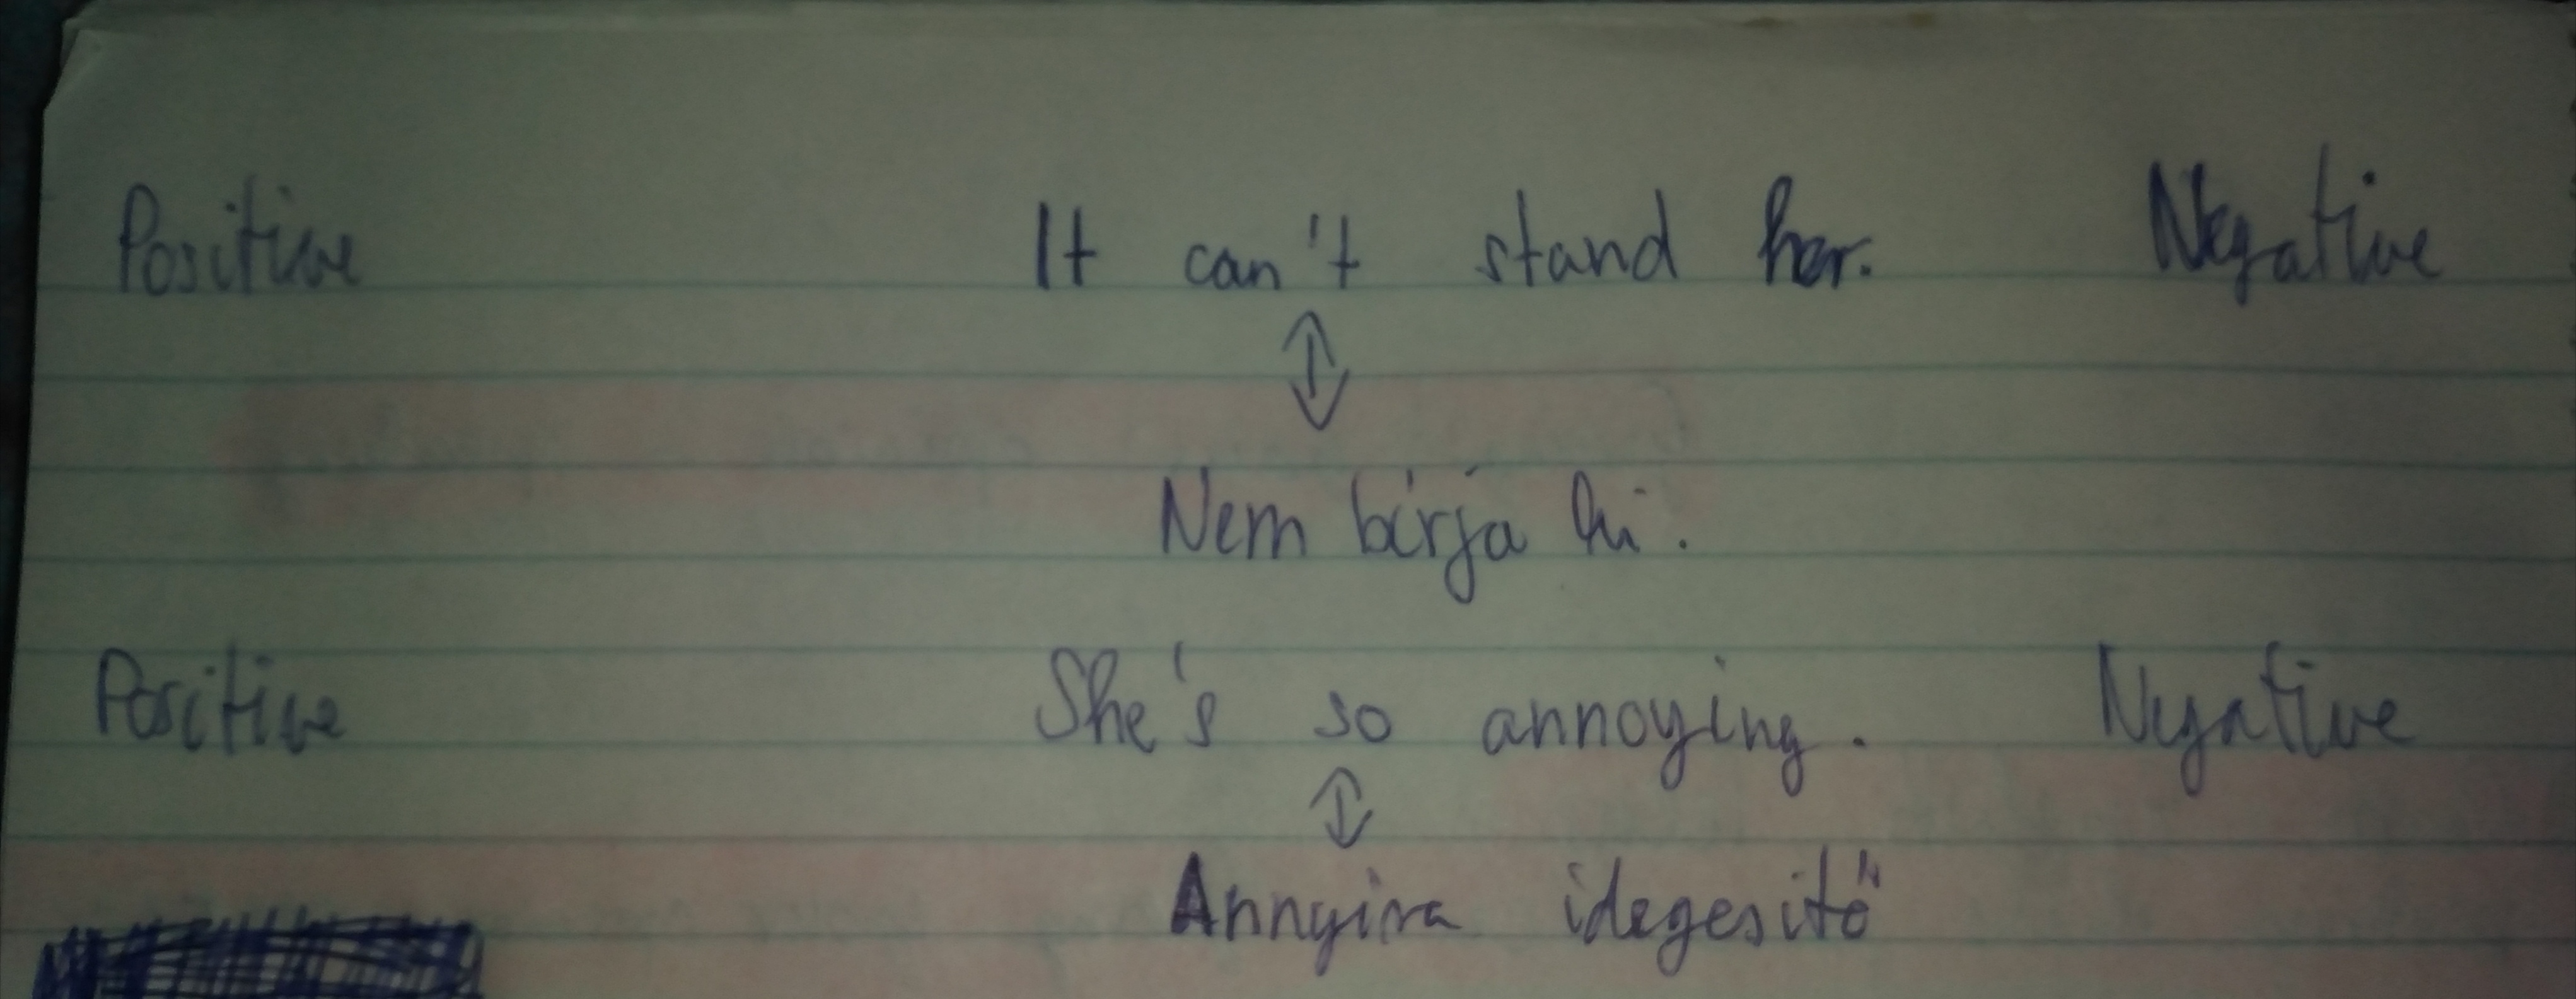 Positive It can't stand her. Negative
Nem bírja ki.
Positive She's so annoying. Negative
Annyira idegesitő